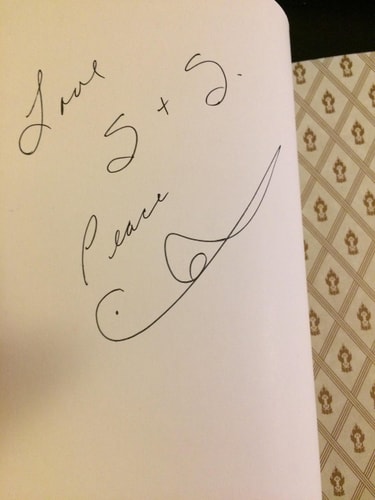 Love
S + S.
Peace